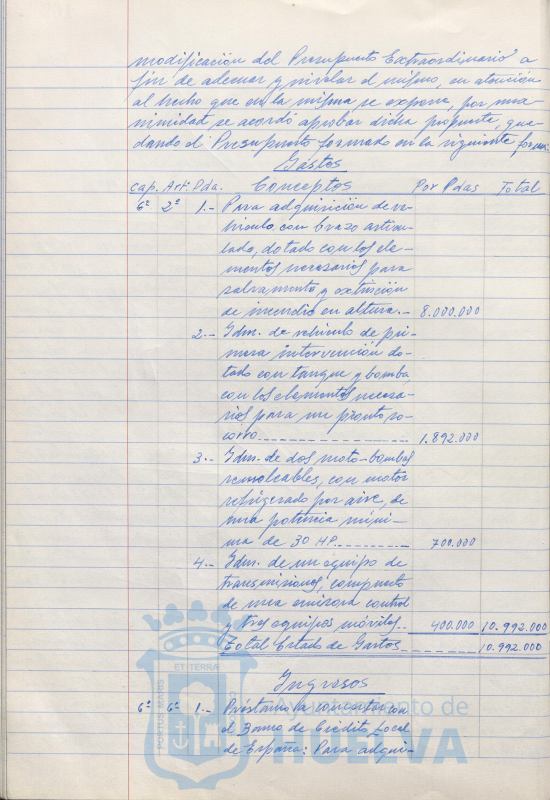 modificación del Presupuesto Extraordinario a
fin de adecuar y nivelar el mismo, en atención
al hecho que en la misma se expone, por una-
nimidad, se acordó aprobar dicha propuesta, que-
dando el Presupuesto formado en la siguiente forma:
Gastos
Cap. Art. Pda. Conceptos Por Pdas Total
6º 2º 1.- Para adquisición de ve-
hículo con brazo articu-
lado, dotado con los ele-
mentos necesarios para
salvamento y extinción
de incendio en altura.- 8.000.000
2.- Idm. de vehículo de pri-
mera intervención do-
tado con tanque y bomba
con los elementos necesa-
rios para un pronto so-
corro 1.892.000
3.- Idm. de dos moto-bombas
remolcables, con motor
refrigerado por aire, de
una potencia míni-
ma de 30 HP. 700.000
4.- Idm. de un equipo de
transmisiones, compuesto
de una emisora control
y tres equipos móviles.. 400.000 10.992.000
Total Estado de Gastos 10.992.000
Ingresos
6º 6º 1.- Préstamo a concertar con
el Banco de Crédito Local
de España: Para adqui-
PORTUS MARIS ET TERRAE
Ayuntamiento de
HUELVA